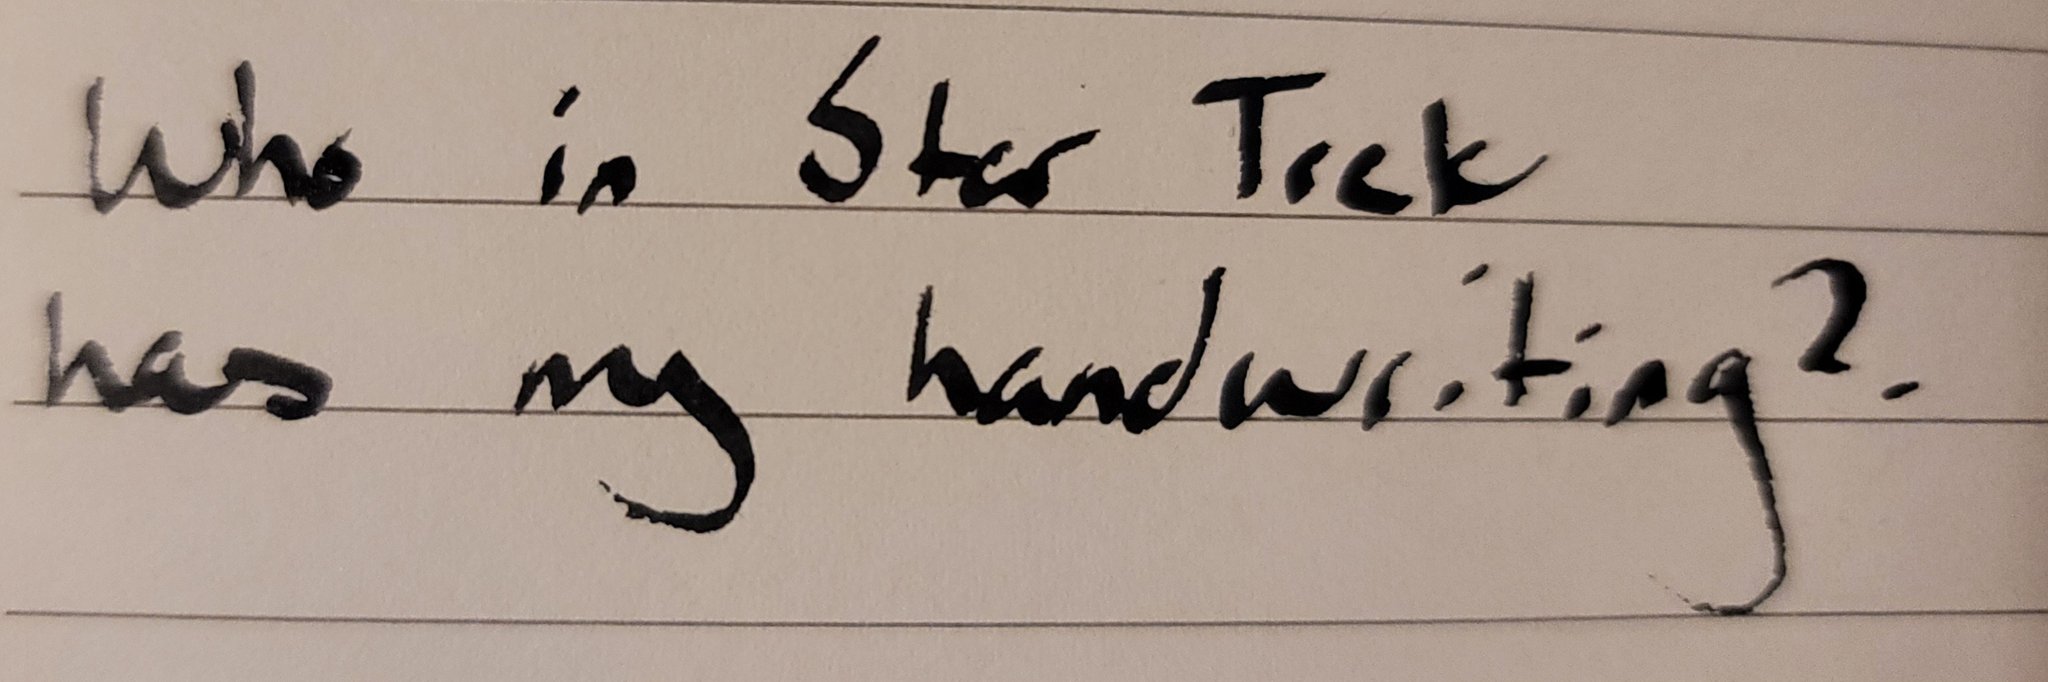 Who in Star Trek
has my handwriting?